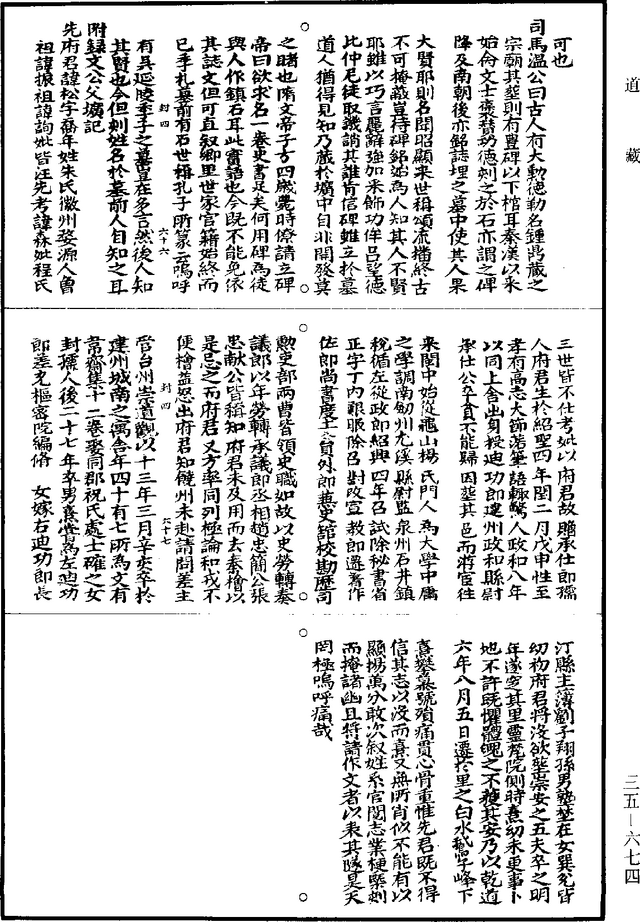 道藏
可也
司馬溫公曰古人有大勳德勒名鍾鼎藏之
宗廟其葬則有豐碑以下棺耳秦漢以來
始命文士褒贊功德刻之於石亦謂之碑
降及南朝後亦銘誌埋之墓中使其人果
大賢耶則名聞昭顯衆世稱頌流播終古
不可掩蔽豈待碑銘始為人知其人不賢
耶雖以巧言麗辭強加采飾功侔呂望德
比仲尼徒取譏誚其誰肯信碑雖立於墓
道人猶得見知乃藏於壙中自非開發莫
之睹也隋文帝子古四歲斃時僚請立碑
帝曰欲求名一卷史書足矣何用碑為徒
與人作鎮石耳此實語也今既不能免依
其誌文但可直叙鄉里世家官籍始終而
已季札墓前有石世稱孔子所篆云嗚呼
封四
六十六
有吳延陵季子之墓豈在多言然後人知
其賢也今但刻姓名於墓前人自知之耳
附錄文公父壙記
先府君諱松字喬年姓朱氏徽州婺源人曾
祖諱振祖諱詢妣皆汪先考諱森妣程氏
三世皆不仕考妣以府君故贈承仕郎孺
人府君生於紹聖四年閏二月戊申性至
孝有高志大節落筆語輒驚人政和八年
以同上舍出身授迪功郎建州政和縣尉
承仕公卒貧不能歸因葬其邑而游宦往
來閩中始從龜山楊氏門人為大學中庸
之學調南劍州尤溪縣尉監泉州石井鎮
稅循左從政郎紹興四年召試除秘書省
正字丁內艱服除召對改宣教郎遷著作
佐郎尚書度支員外郎兼史館校勘歷司
勳吏部兩曹皆領史職如故以史勞轉奏
議郎以年勞轉承議郎丞相趙忠簡公張
忠獻公皆稱知府君未及用而去秦檜以
是忌之而府君又方率同列極論和戎不
便檜益怒出府君知饒州未赴請間差主
封四
六十七
管台州崇道觀以十三年三月辛亥卒於
建州城南之寓舍年四十有七所為文有
韋齋集十二卷娶同郡祝氏處士確之女
封孺人後二十七年卒男熹嘗為左迪功
郎差充樞密院編脩　女嫁右迪功郎長
汀縣主簿劉子翔孫男塾埜在女巽兌皆
幼初府君將沒欲葬崇安之五夫卒之明
年遂窆其里靈梵院側時熹幼未更事卜
地不許既懼體魄之不獲其安乃以乾道
六年八月五日遷於里之白水鵝子峰下
熹攀慕號殞痛貫心骨重惟先君既不得
信其志以沒而熹又無所肖似不能有以
顯揚萬分敢次叙姓系官閥志業梗槩刻
而掩諸幽且將請作文者以表其隧昊天
罔極嗚呼痛哉
三五—六七四